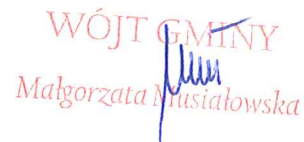 WÓJT GMINY
Małgorzata Musiałowska